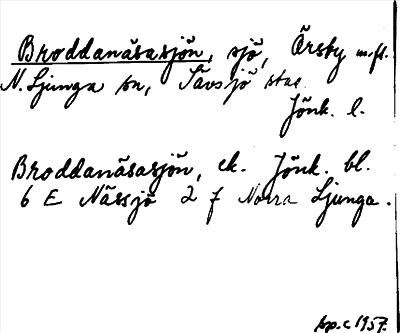 Broddanäsasjön, sjö, Örsby m.fl.
N. Ljunga sn, Sävsjö stad
Jönk. l.
Broddanäsasjön, ek. Jönk. bl.
6 E Nässjö 2 f Norra Ljunga.
sp. c 1957.